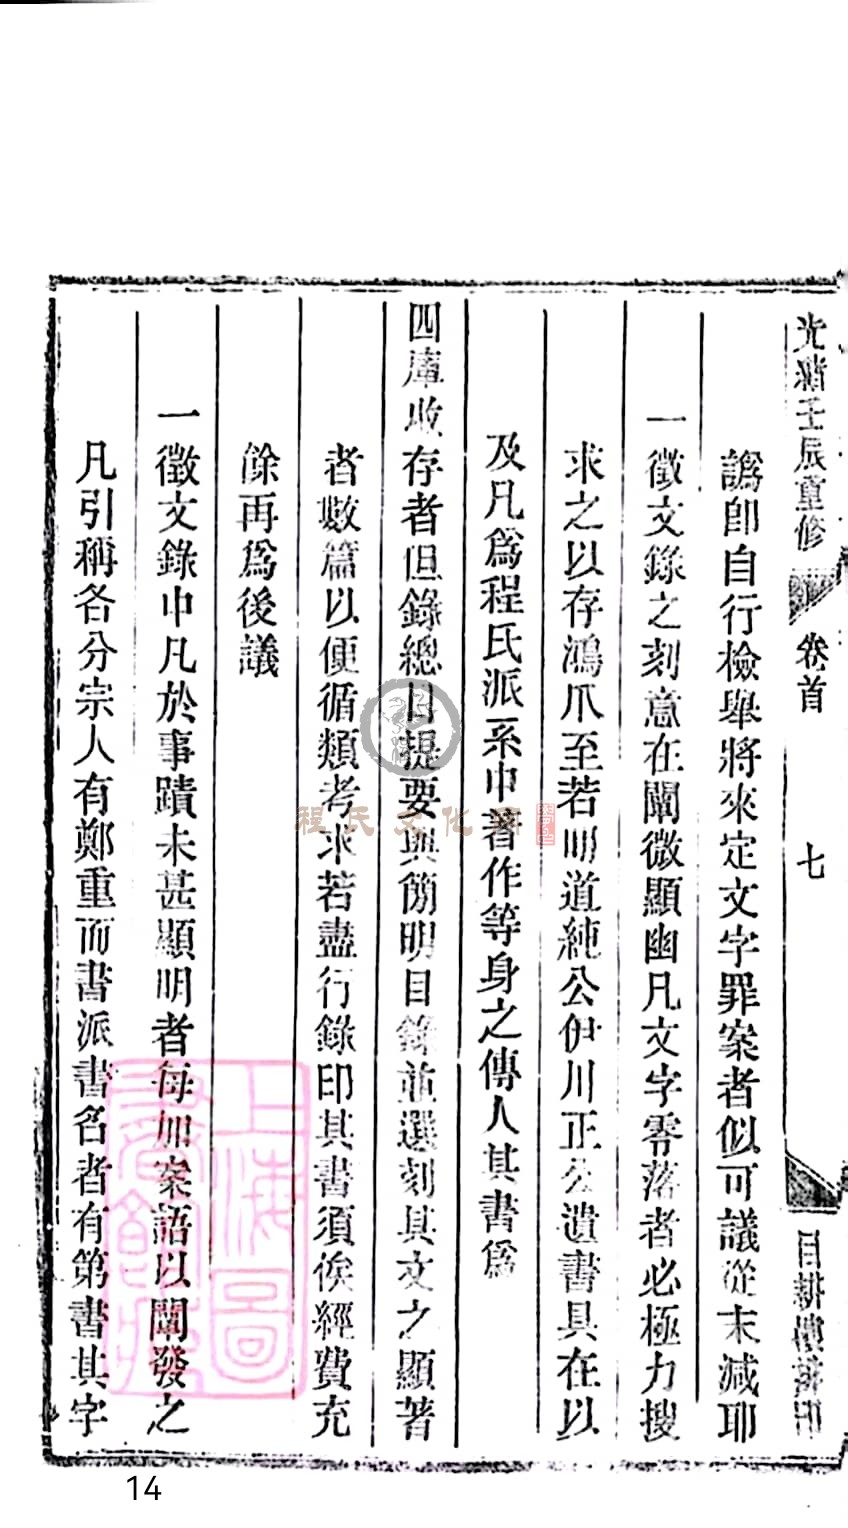 光緒壬辰重修 卷首 七
譌卽自行檢舉將來定文字罪案者似可議從末減耶
一徵文錄之刻意在闡微顯幽凡文字零落者必極力搜
求之以存鴻爪至若明道純公伊川正公遺書具在以
及凡爲程氏派系中著作等身之傳人其書爲
四庫收存者但錄總目提要與簡明目錄並選刻其文之顯著
者數篇以便循類考求若盡行錄印其書須俟經費充
餘再爲後議
一徵文錄中凡於事蹟未甚顯明者每加案語以闡發之
凡引稱各分宗人有鄭重而書派書名者有第書其字
程氏文化網
上海圖書館藏
14